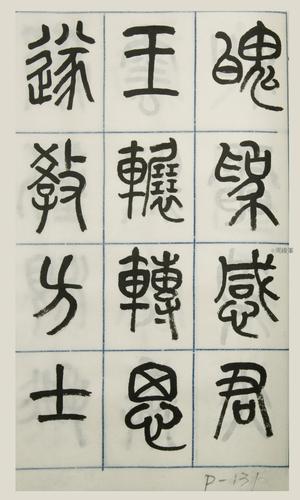 魄為感君
王輾轉思
遂教方士
P-131